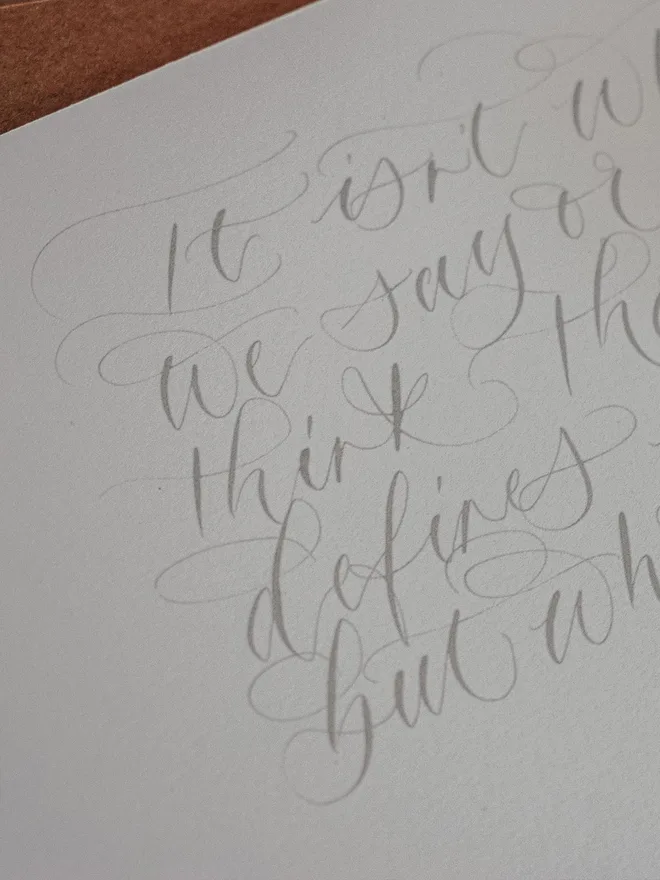 It isn't w
we say or
think th
defines
but wh